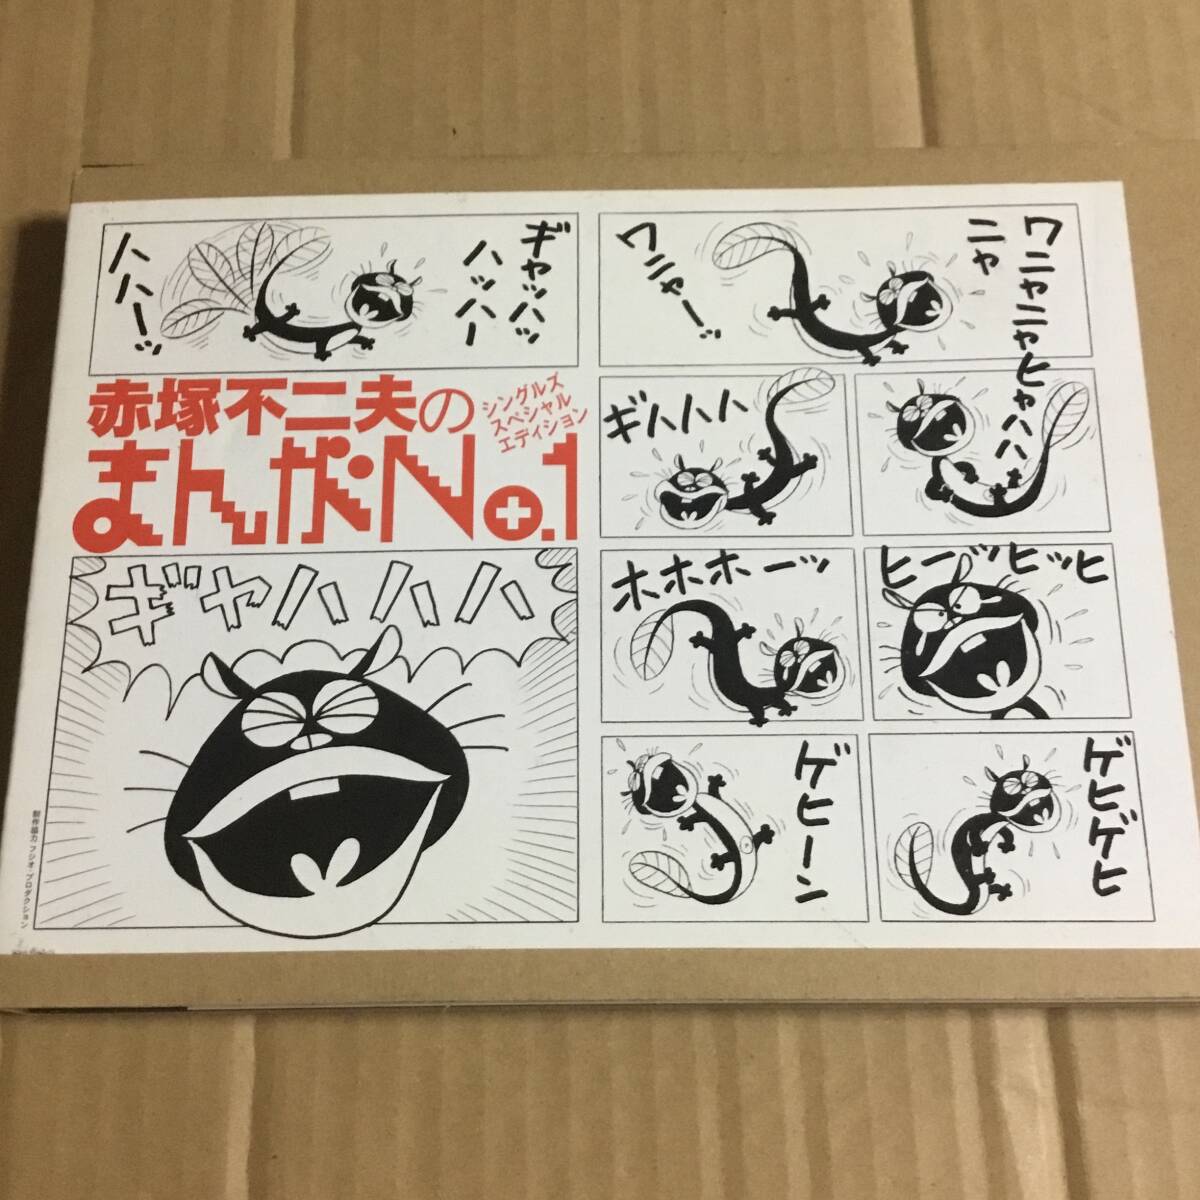 ギャッハッ
ハッハー
ハハーッ
赤塚不二夫の
まんがNo.1
シングルズ
スペシャル
エディション
ギャハハハ
ワニャニャヒャハハハ
ニャ
ワニャーッ
ギハハハ
ホホホーッ
ヒーッヒッヒ
ゲヒーン
ゲヒゲヒ
制作協力 フジオ・プロダクション